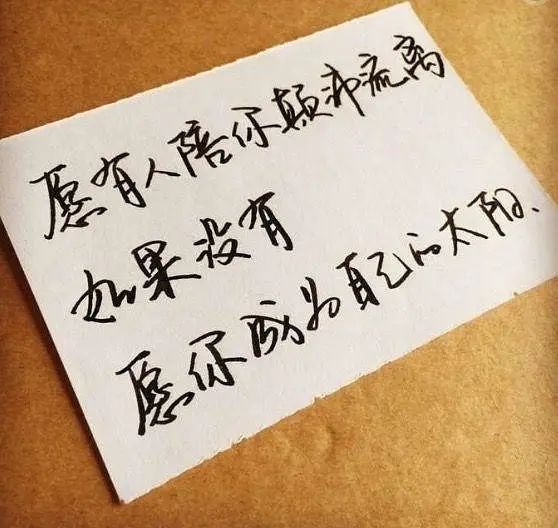 愿有人陪你颠沛流离
如果没有
愿你成为自己的太阳.